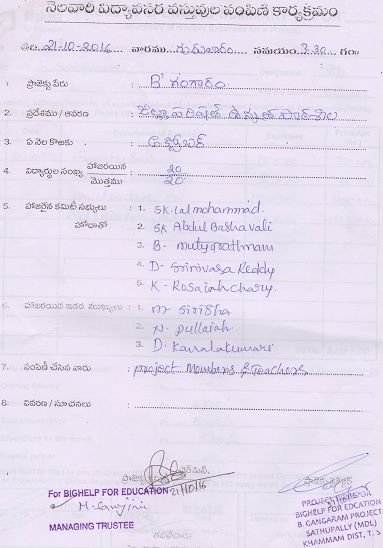 నెలవారి విద్యావసర వస్తువుల పంపిణి కార్యక్రమం
తేది. 21-10-2016 వారము గురువారం సమయం 3.20 గం
1. ప్రాజెక్టు పేరు B' గంగారం
2. ప్రదేశము / ఆవరణ జిల్లా పరిషత్ ఉన్నత పాఠశాల
3. ఏ నెల కొఱకు అక్టోబర్
4. విద్యార్థుల సంఖ్య హాజరయిన 20
మొత్తము 20
5. హాజరైన కమిటీ సభ్యులు : 1. SK. Lalmohammad.
హోదాతో 2. SK Abdul Bashavali
3. B. mutyarathnam
4. D- Srinivasa Reddy
5. K - Rosaiah chary.
6. హాజరయిన ఇతర ముఖ్యులు : 1. m- Sirisha
2. N. pullaiah
3. D. Kanakakumari
7. పంపిణీ చేసిన వారు : project Members & Teachers
8. వివరణ / సూచనలు :
For BIGHELP FOR EDUCATION 21/10/16
M-Sarojini
MANAGING TRUSTEE
BIGHELP FOR EDCATION
B. GANGARAM PROJECT
SATHUPALLY (MDL)
KHAMMAM DIST, T.S